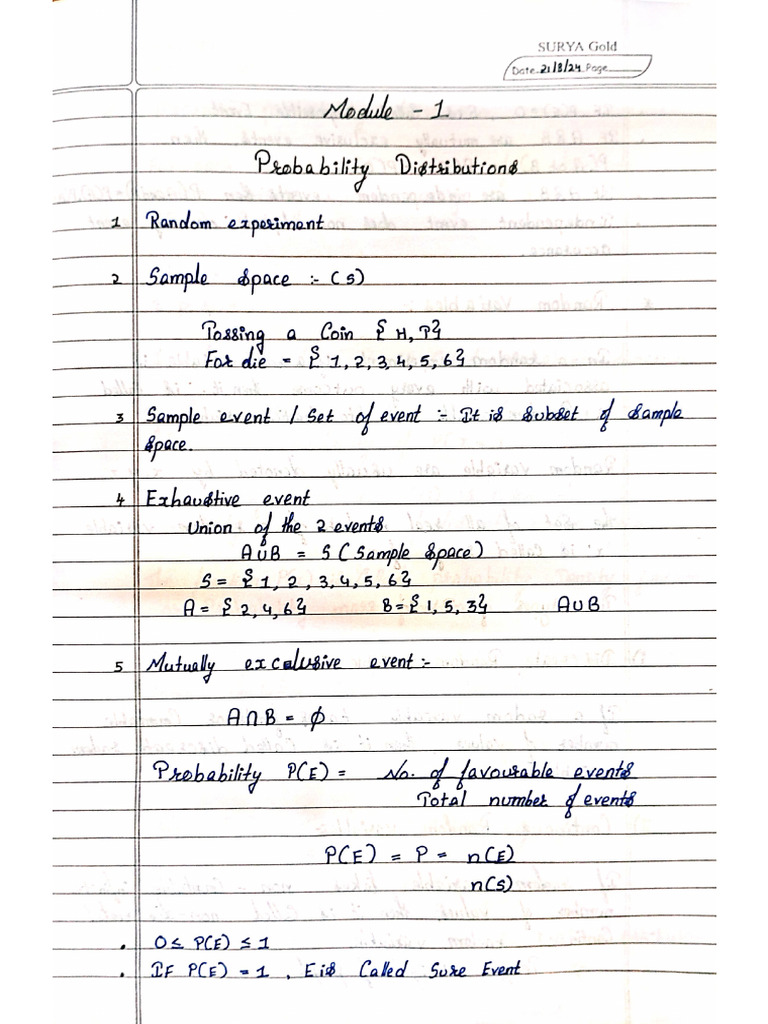 SURYA Gold
Date 21/8/24 Page
Module - 1
Probability Distributions
1 Random experiment
2 Sample space :- (S)
Tossing a Coin { H, T}
For die = { 1, 2, 3, 4, 5, 6}
3 Sample event / Set of event :- It is subset of sample
space.
4 Exhaustive event
Union of the 2 events
A∪B = S (Sample space)
S = { 1, 2, 3, 4, 5, 6}
A = { 2, 4, 6} B = { 1, 5, 3} A∪B
5 Mutually exclusive event :-
A∩B = ϕ
Probability P(E) = No. of favourable events
Total number of events
P(E) = P = n(E)
n(S)
• 0 ≤ P(E) ≤ 1
• IF P(E) = 1 , E is Called Sure Event